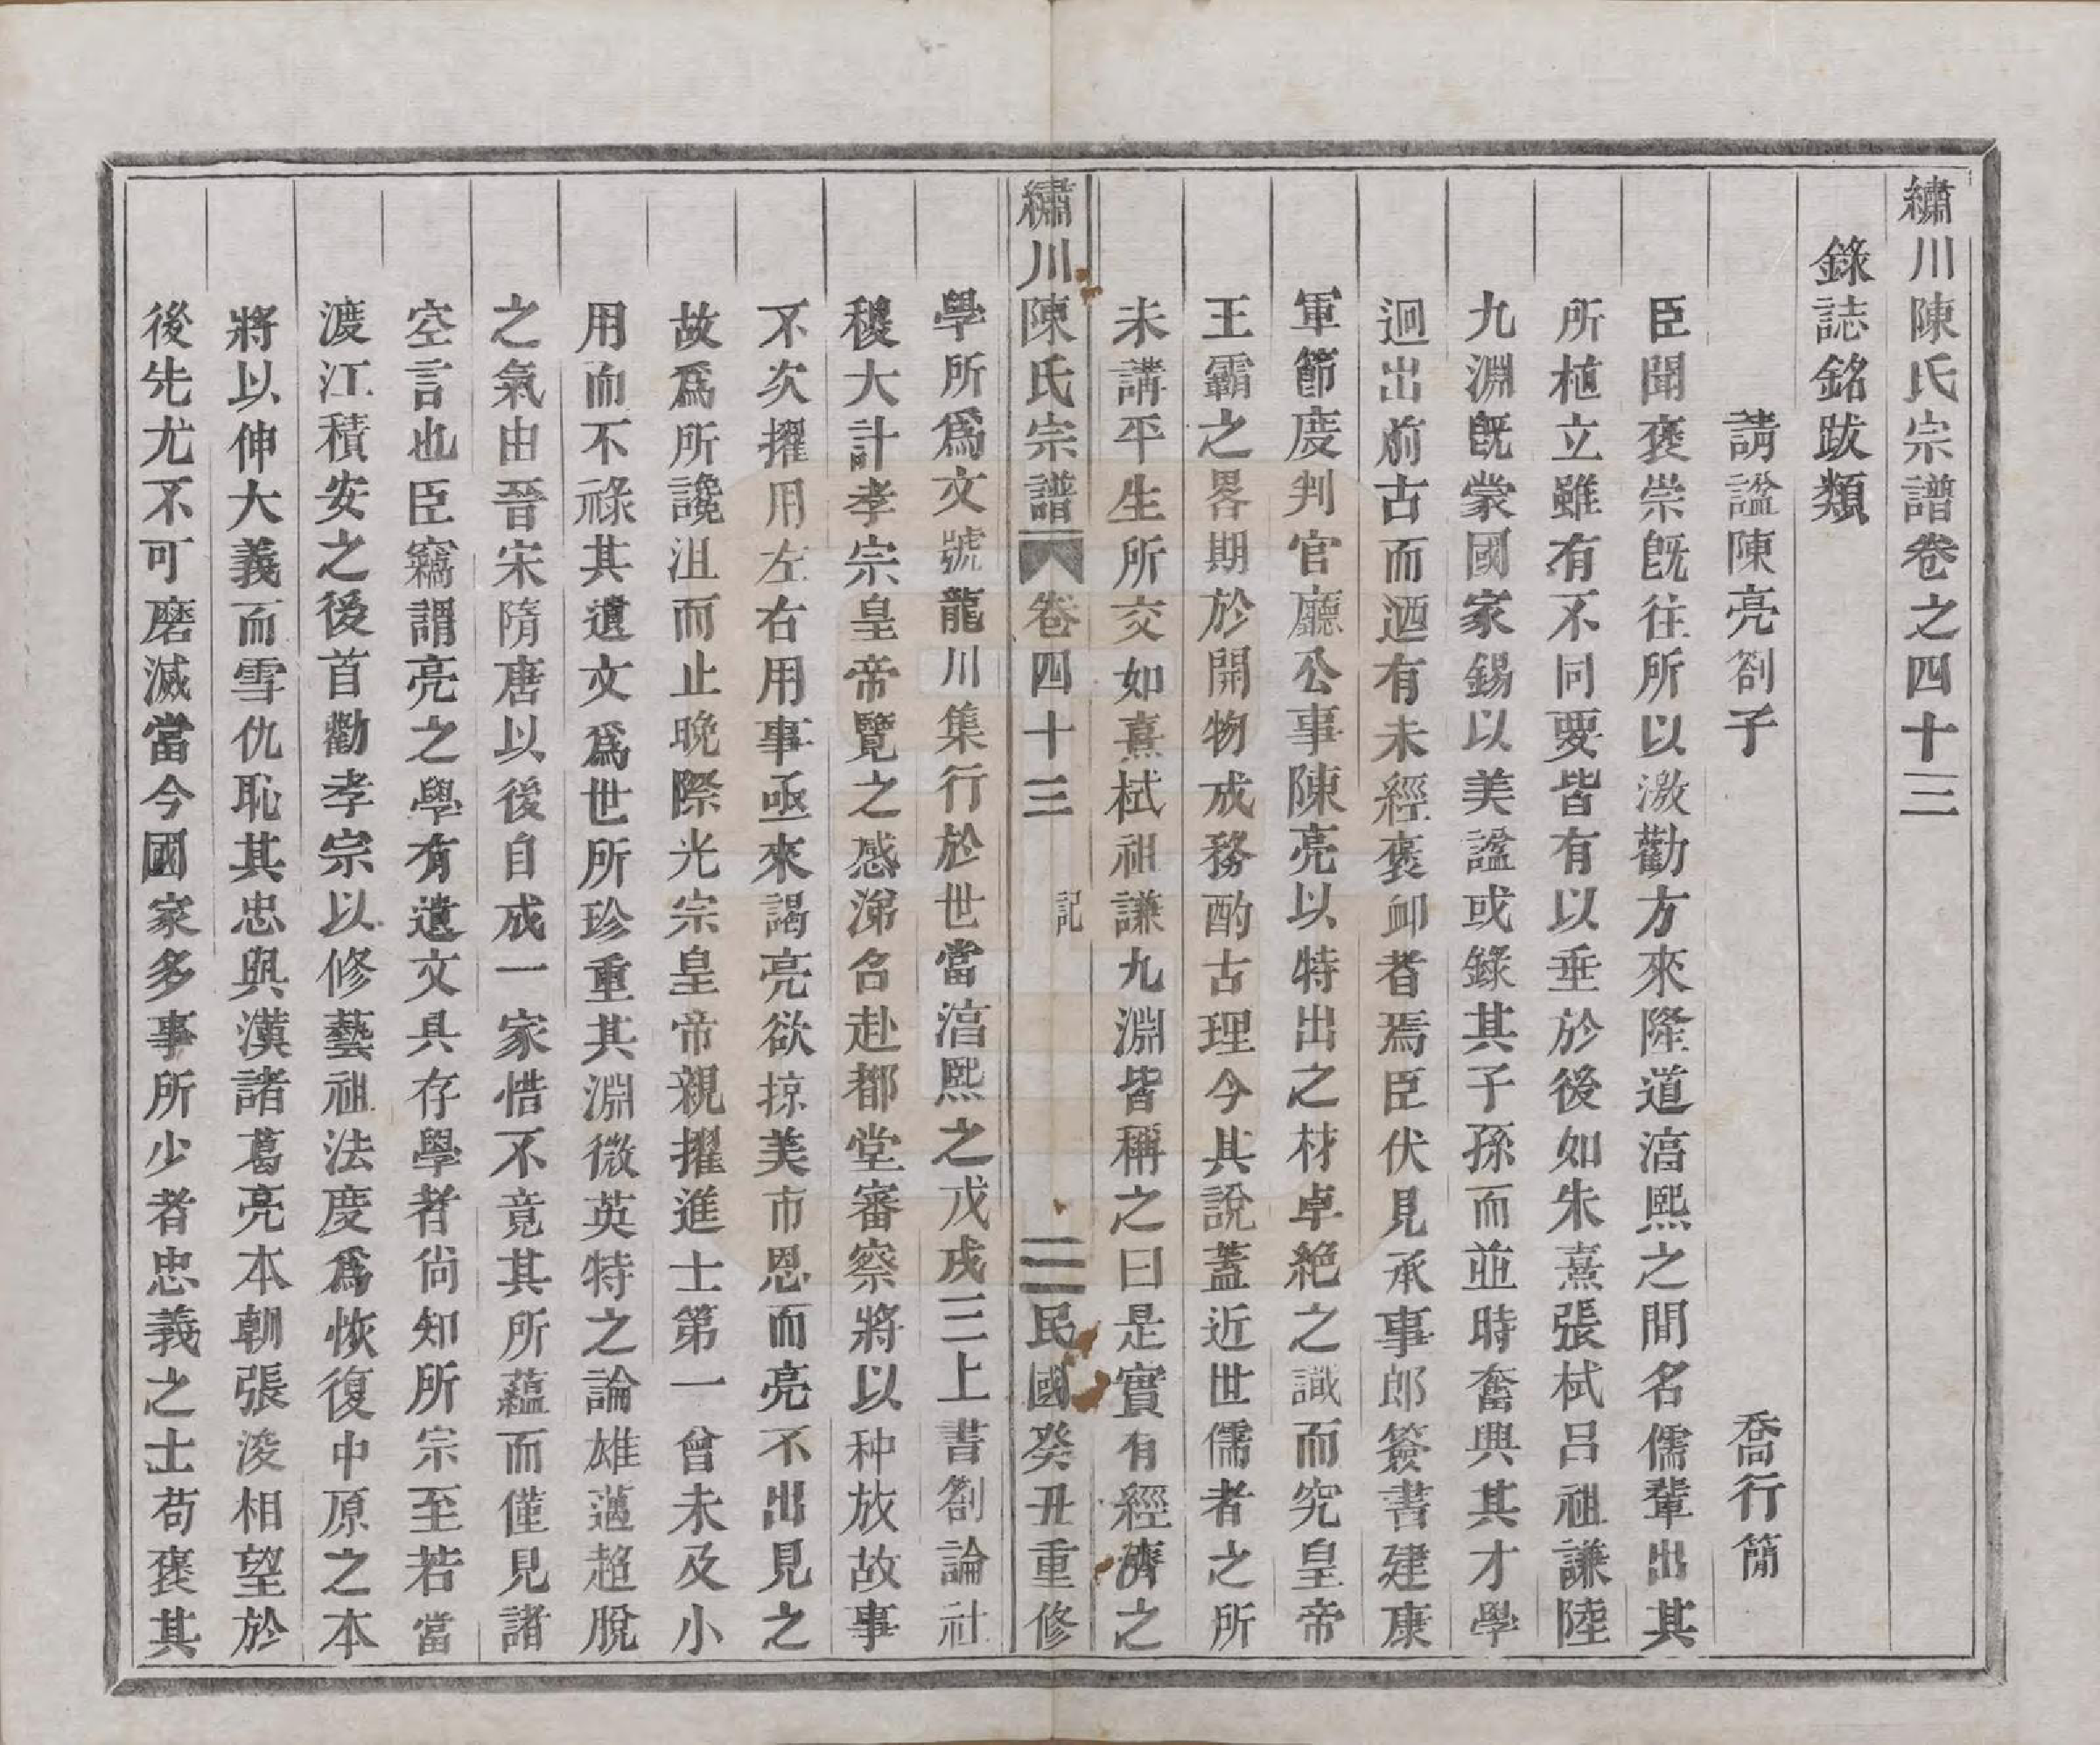 繡川陳氏宗譜卷之四十三
錄誌銘跋類
請謚陳亮劄子 喬行簡
臣聞褒崇旣往所以激勸方來隆道湻熙之間名儒輩出其
所植立雖有不同要皆有以垂於後如朱熹張栻吕祖謙陸
九淵旣蒙國家錫以美謚或錄其子孫而並時奮興其才學
迥出前古而迺有未經褒卹者焉臣伏見承事郎簽書建康
軍節度判官廳公事陳亮以特出之材卓絶之識而究皇帝
王霸之畧期於開物成務酌古理今其說蓋近世儒者之所
未講平生所交如熹栻祖謙九淵皆稱之曰是實有經濟之
繡川陳氏宗譜 卷四十三 記 一 民國癸丑重修
學所爲文號龍川集行於世當湻熙之戊戌三上書劄論社
稷大計孝宗皇帝覽之感涕召赴都堂審察將以种放故事
不次擢用左右用事亟來謁亮欲掠美市恩而亮不出見之
故爲所讒沮而止晩際光宗皇帝親擢進士第一曾未及小
用而不祿其遺文爲世所珍重其淵微英特之論雄邁超脫
之氣由晉宋隋唐以後自成一家惜不竟其所蘊而僅見諸
空言也臣竊謂亮之學有遺文具存學者尙知所宗至若當
渡江積安之後首勸孝宗以修藝祖法度爲恢復中原之本
將以伸大義而雪仇恥其忠與漢諸葛亮本朝張浚相望於
後先尤不可磨滅當今國家多事所少者忠義之士苟褒其